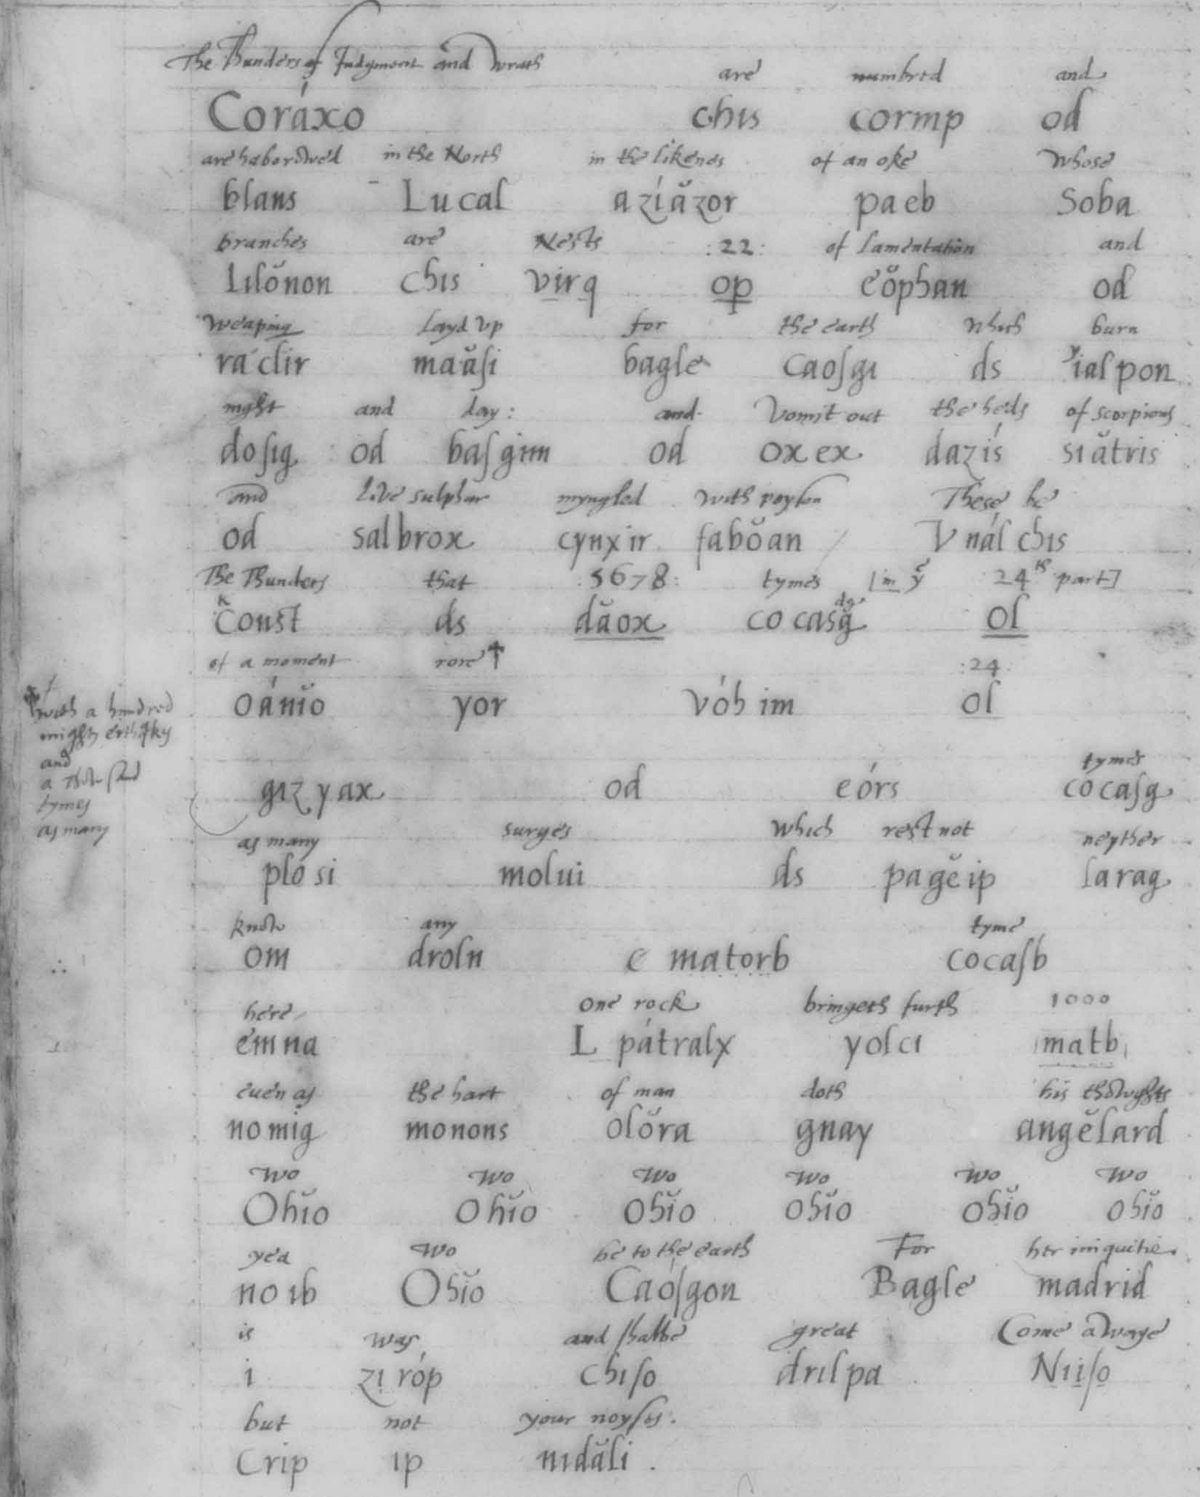 The Thunders of Judgment and Wrath are numbred and
Coráxo chis cormp od
are haborowed in the North in the likenes of an oke whose
blans Lucal aziăzor paeb Soba
branches are Nests :22: of lamentation and
Lilŏnon chis virq op eŏphan od
weaping layd vp for the earth which burn
raclir maăſi bagle caoſgi ds ialpon
night and day: and vomit out the heds of scorpions
doſig od baſgim od oxex dazis siătris
and live sulphur myngled with poyson These be
od salbrox cynxir fabŏan Vnál chis
The Thunders that :5678: tymes [in yᵉ 24th part]
Const ds dăox cocasg ol
of a moment rore † :24:
oánĭo yor vóhim ol
† with a hundred
mighty erthqkys
and
a thowsand
tymes
as many
tymes
gizyax od eórs cocaſg
as many surges which rest not neyther
plosi molui ds pagĕip larag
know any tyme
om droln matorb cocaſb
here one rock bringeth furth 1000
emna L pátralx yolci matb
euen as the hart of man doth his thowghts
nomig monons olŏra gnay angĕlard
wo wo wo wo wo wo
Ohĭo ohĭo ohĭo ohĭo ohĭo ohĭo
yea wo be to the earth For her iniquitie
noib Ohĭo Caóſgon Bagle madrid
is was and shalbe great Come awaye
i ziróp chiſo drilpa Niiſo
but not your noyses.
Crip ip nidăli.